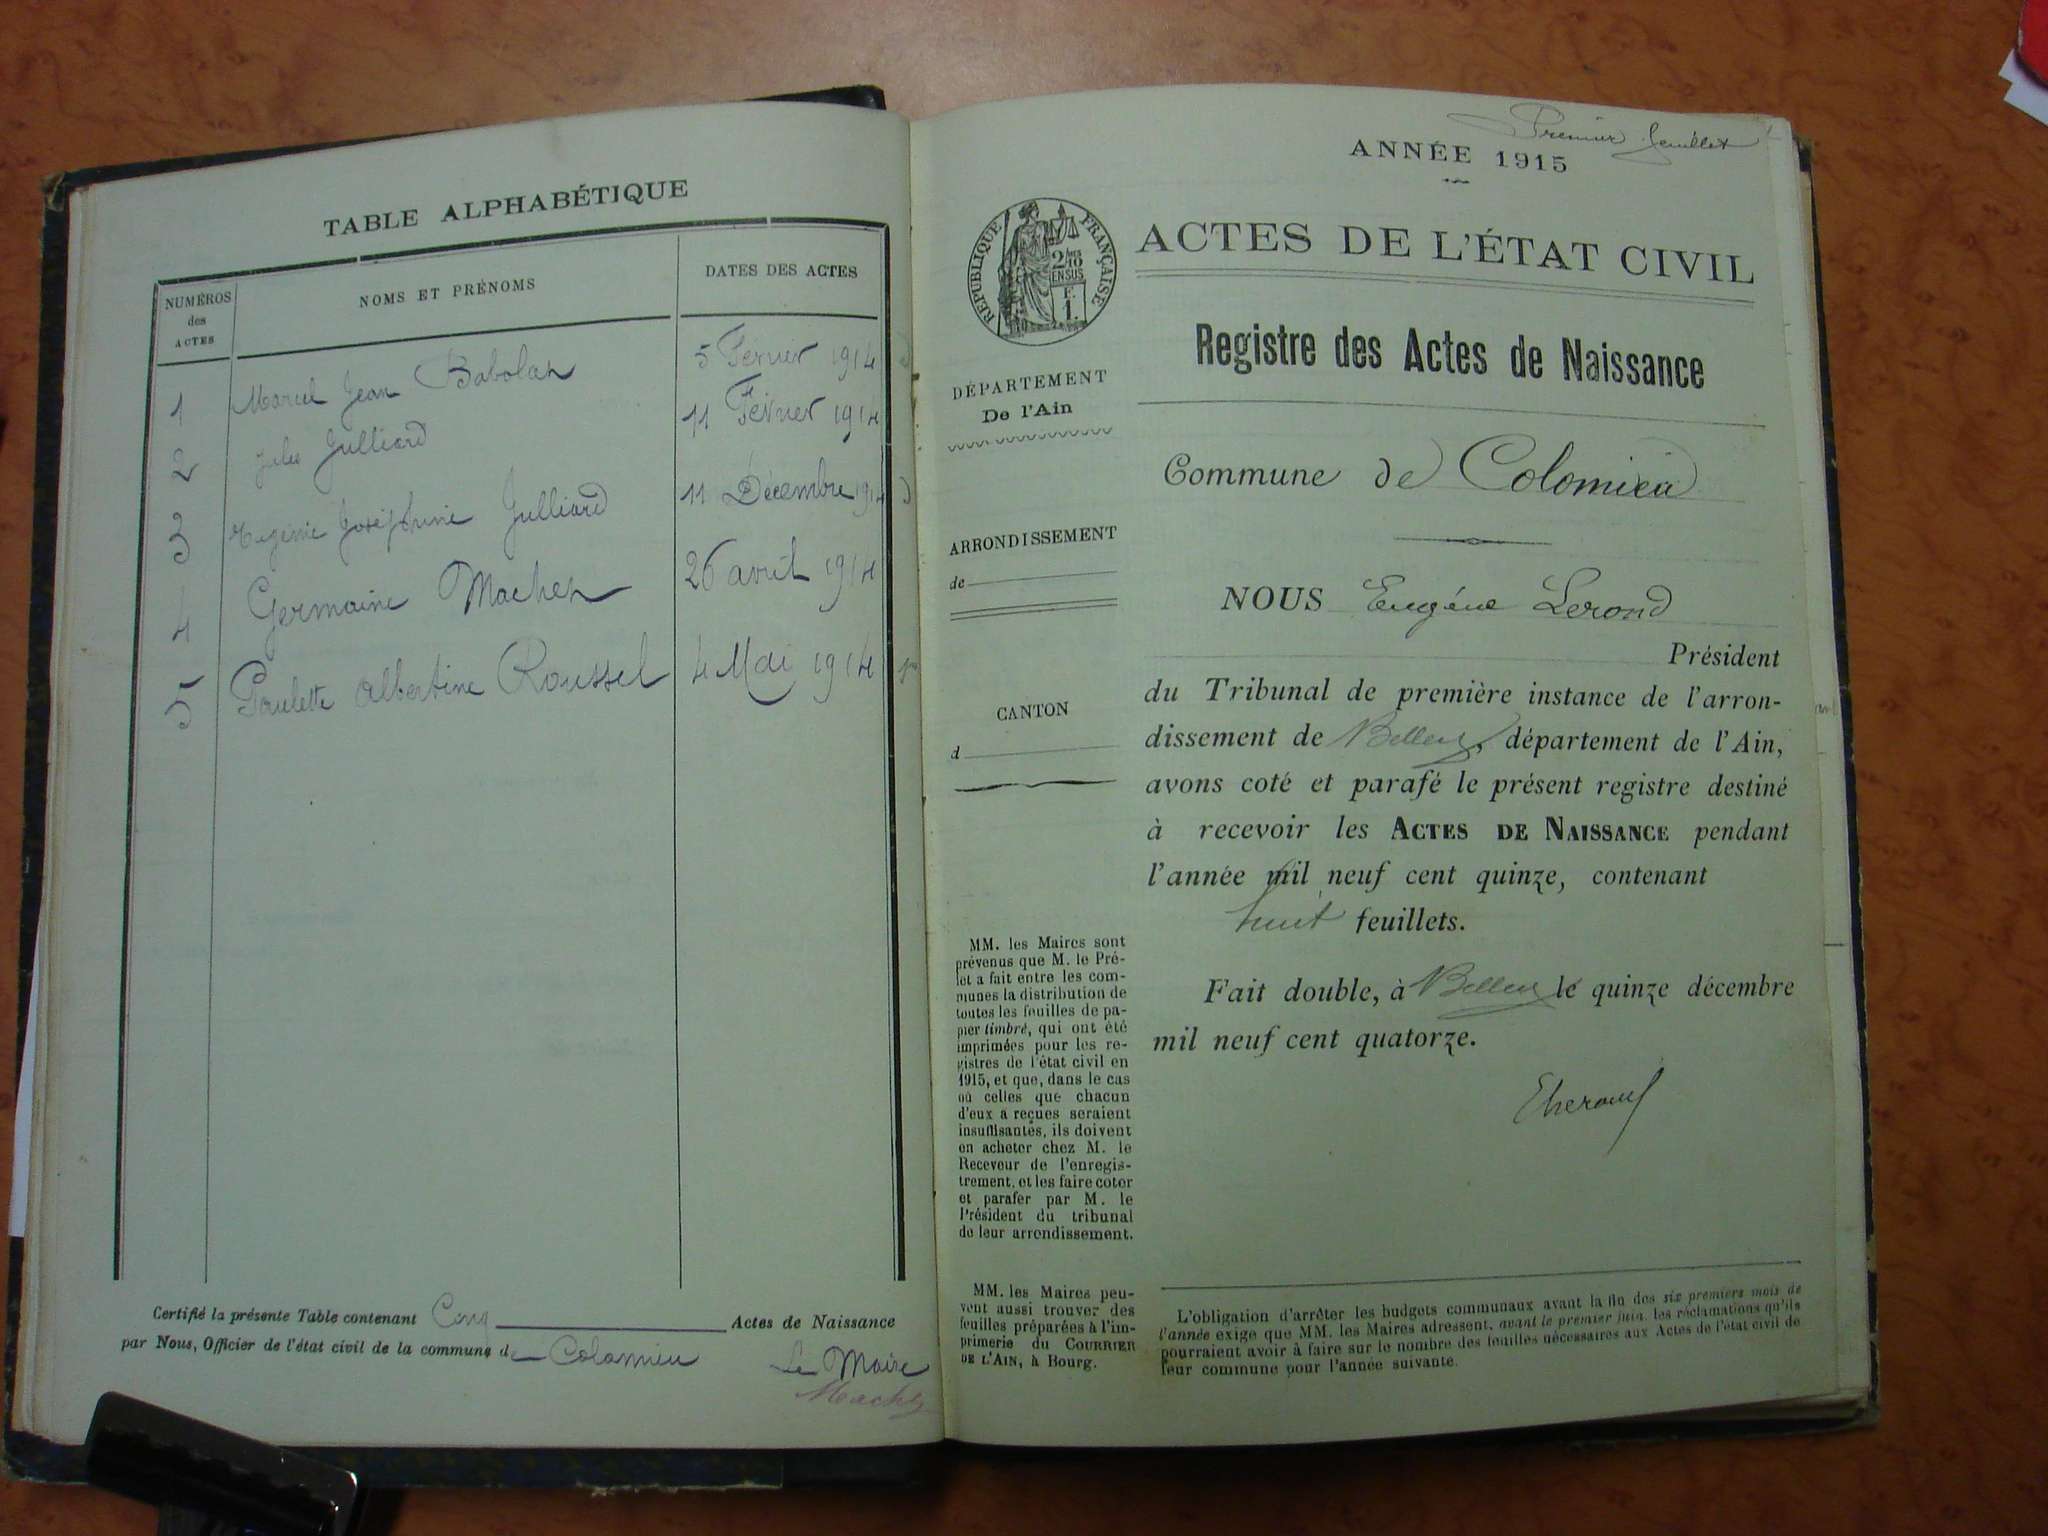 TABLE ALPHABÉTIQUE
NUMÉROS des ACTES
NOMS ET PRÉNOMS
DATES DES ACTES
1 Marcel Jean Babolat 5 Février 1914
2 Jules Julliard 11 Février 1914
3 Joséphine Julliard 11 Décembre 1914
4 Germaine Machet 26 avril 1914
5 Paulette Albertine Roussel 4 Mai 1914
Certifié la présente Table contenant Cinq Actes de Naissance
par Nous, Officier de l'état civil de la commune de Colomieu
Le Maire
Premier feuillet
ANNÉE 1915
RÉPUBLIQUE FRANÇAISE
2/10 EN SUS
F. 1.
ACTES DE L'ÉTAT CIVIL
Registre des Actes de Naissance
DÉPARTEMENT
De l'Ain
Commune de Colomieu
ARRONDISSEMENT
de
NOUS Eugène Lerond
Président
CANTON
d
du Tribunal de première instance de l'arron-
dissement de Belley, département de l'Ain,
avons coté et parafé le présent registre destiné
à recevoir les ACTES DE NAISSANCE pendant
l'année mil neuf cent quinze, contenant
huit feuillets.
Fait double, à Belley le quinze décembre
mil neuf cent quatorze.
MM. les Maires sont
prévenus que M. le Pré-
fet a fait entre les com-
munes la distribution de
toutes les feuilles de pa-
pier timbré, qui ont été
imprimées pour les re-
gistres de l'état civil en
1915, et que, dans le cas
où celles que chacun
d'eux a reçues seraient
insuffisantes, ils doivent
en acheter chez M. le
Receveur de l'enregis-
trement, et les faire coter
et parafer par M. le
Président du tribunal
de leur arrondissement.
MM. les Maires peu-
vent aussi trouver des
feuilles préparées à l'im-
primerie du COURRIER
DE L'AIN, à Bourg.
L'obligation d'arrêter les budgets communaux avant la fin des six premiers mois de
l'année exige que MM. les Maires adressent, avant le premier juin, les réclamations qu'ils
pourraient avoir à faire sur le nombre des feuilles nécessaires aux Actes de l'état civil de
leur commune pour l'année suivante.